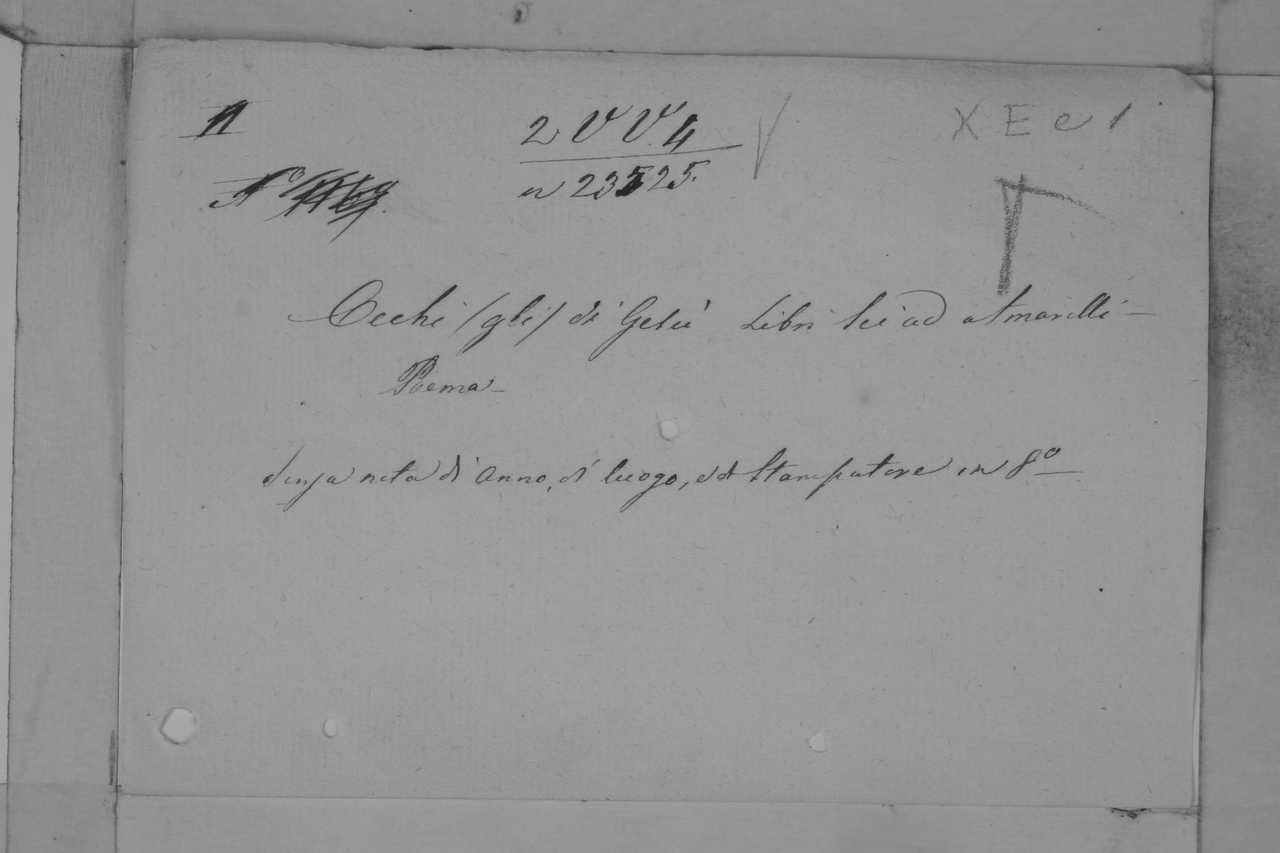 2 V V. 4
X E c 1
n 23525.
Occhi (gli) di Gesù Libri sei ad Amarilli –
Poema –
Senza nota di anno, di luogo, ed Stampatore in 8º